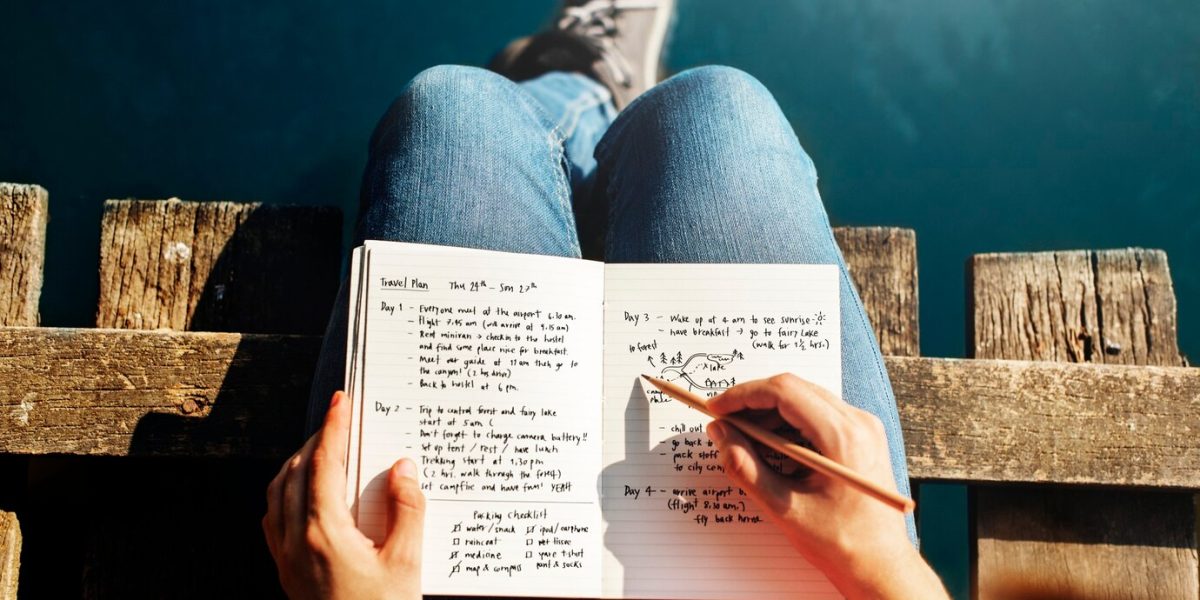 Travel Plan Thu 24th – Sun 27th
Day 1 – Everyone meet at the airport 6.30 am.
– flight 7.45 am (will arrive at 9.15 am)
– Rent minivan → check in to the hostel
and find some place nice for breakfast.
– Meet our guide at 11 am then go to
the canyon! (2 hrs drive)
– Back to hostel at 6 pm.
Day 2 – Trip to central forest and fairy lake
start at 5 am (
– Don't forget to charge camera battery!!
– Set up tent / rest / have lunch
– Trekking start at 1.30 pm
(2 hrs. walk through the forest)
– Set campfire and have fun! YEAH
Packing Checklist
water / snack
ipod / earphone
raincoat
wet tissue
medicine
spare t-shirt
map & compass
pant & socks
Day 3 – Wake up at 4 am to see sunrise
– have breakfast → go to fairy Lake
(walk for 1 1/2 hrs.)
to forest
lake
– chill out
– go back to
– pack stuff
to city
Day 4 – arrive airport
(flight 8.30 am.)
fly back home